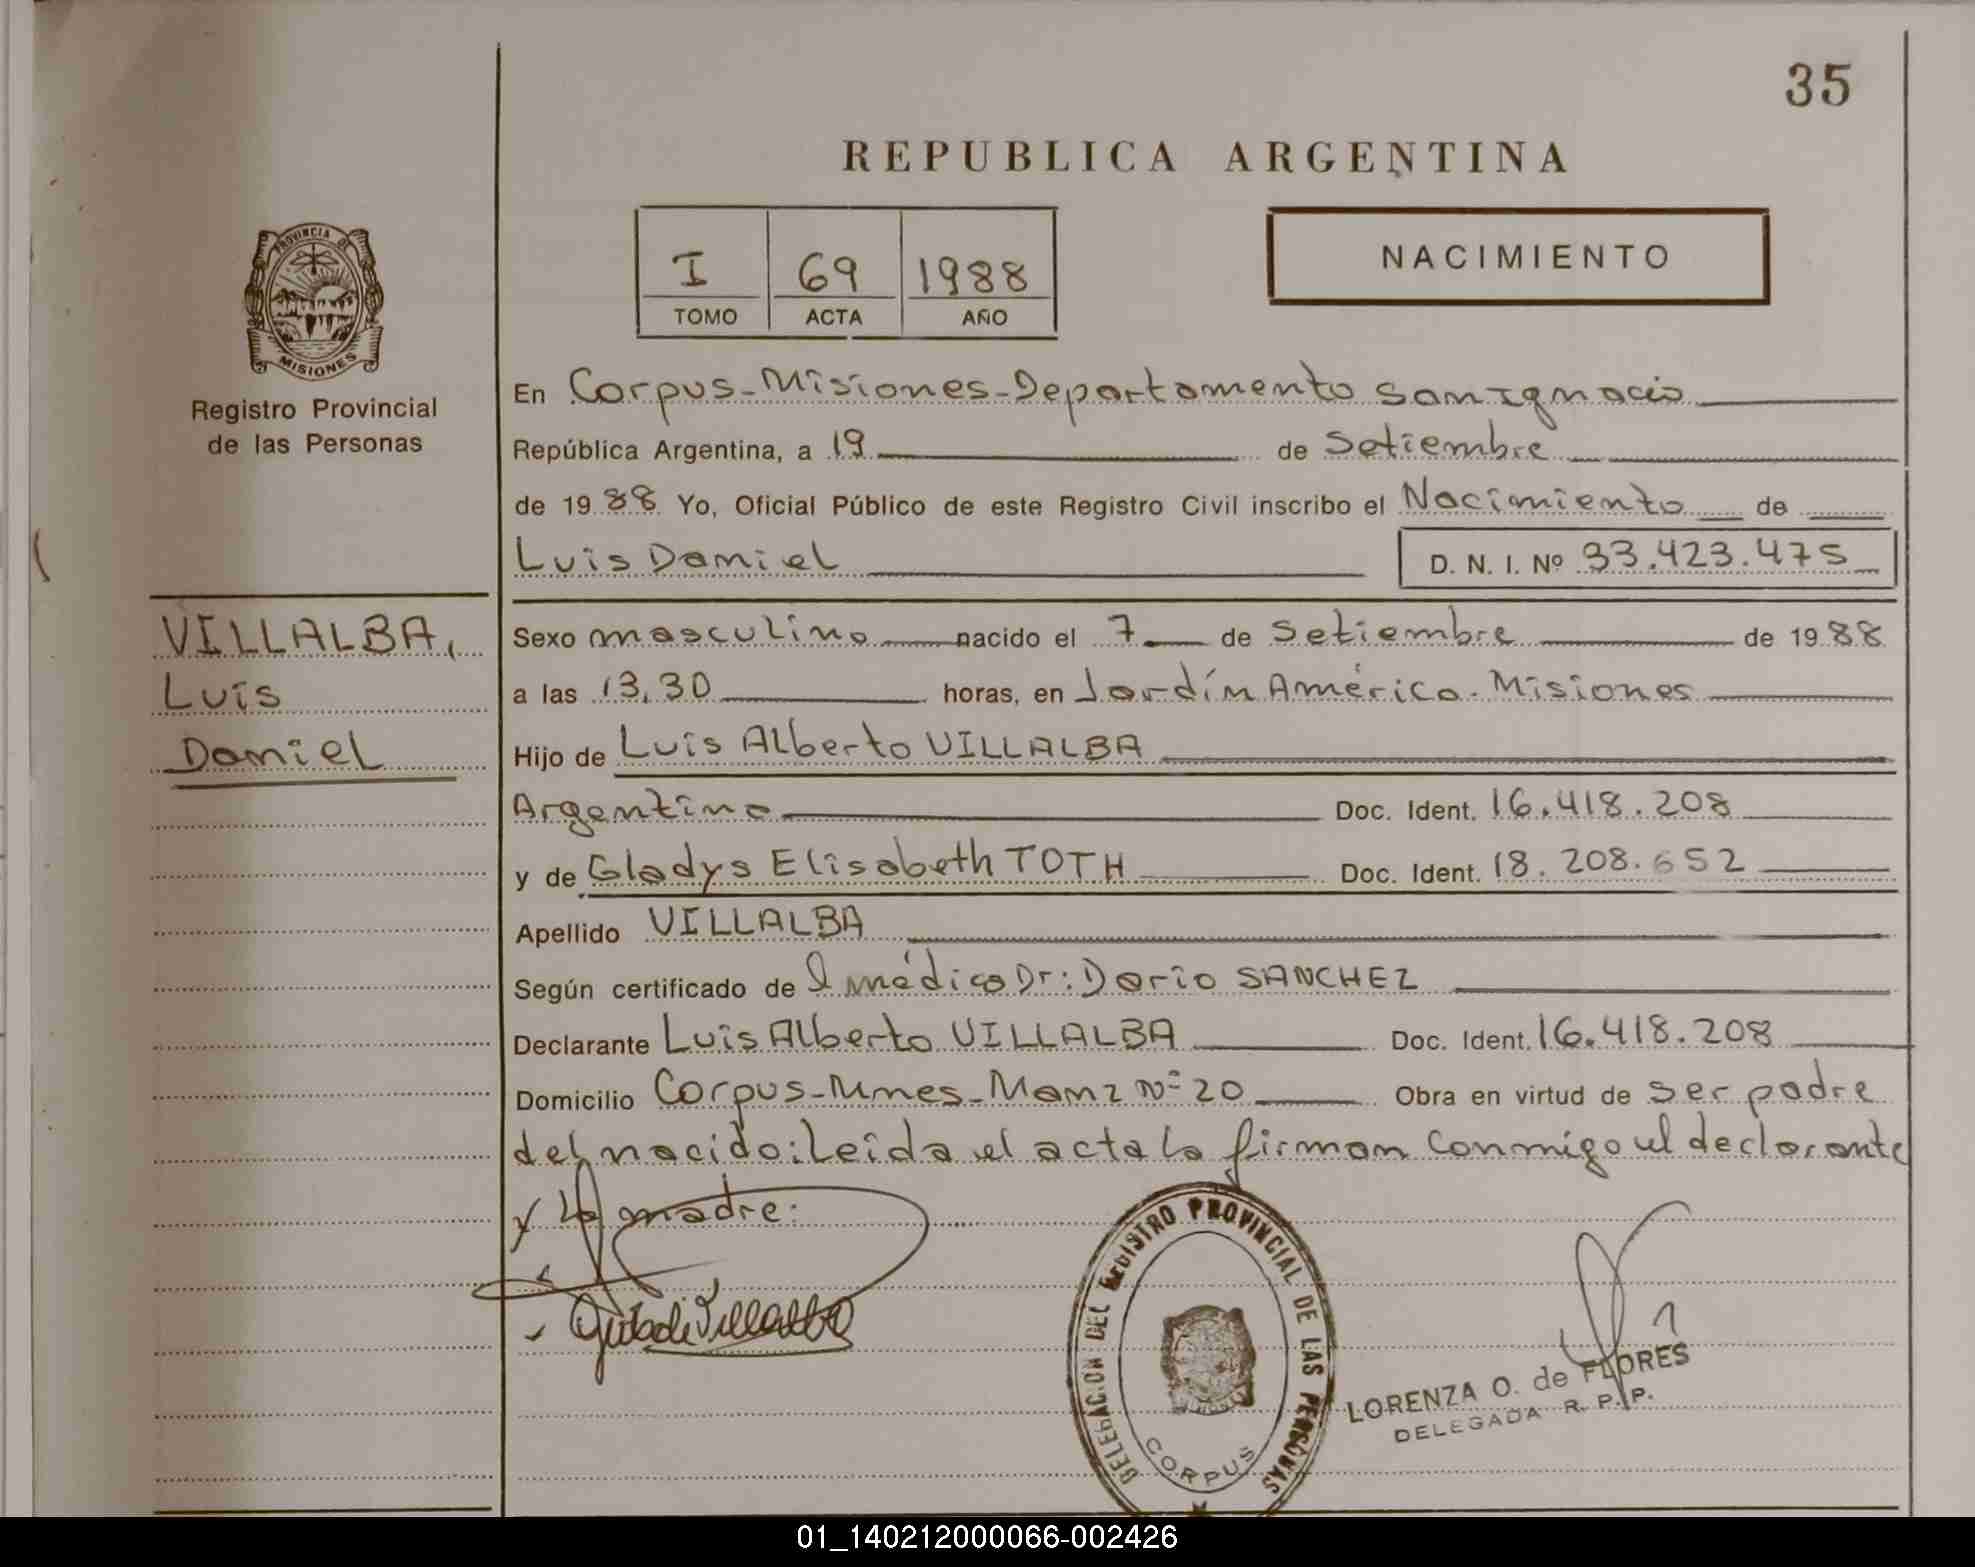 35
REPUBLICA ARGENTINA
I 69 1988
TOMO ACTA AÑO
NACIMIENTO
PROVINCIA DE
MISIONES
Registro Provincial
de las Personas
VILLALBA,
Luis
Daniel
En Corpus-Misiones-Departamento San Ignacio
República Argentina, a 19 de Setiembre
de 1988 Yo, Oficial Público de este Registro Civil inscribo el Nacimiento de
Luis Daniel D. N. I. Nº 33.423.475
Sexo masculino nacido el 7 de Setiembre de 1988
a las 13,30 horas, en Jardín América. Misiones
Hijo de Luis Alberto VILLALBA
Argentino Doc. Ident. 16.418.208
y de Gladys Elisabeth TOTH Doc. Ident. 18.208.652
Apellido VILLALBA
Según certificado de l médico Dr: Dario SANCHEZ
Declarante Luis Alberto VILLALBA Doc. Ident. 16.418.208
Domicilio Corpus-Mnes-Manz Nº 20 Obra en virtud de ser padre
del nacido: Leída el acta la firman conmigo el declarante
y la madre:
DELEGACION DEL REGISTRO PROVINCIAL DE LAS PERSONAS
CORPUS
LORENZA O. de FLORES
DELEGADA R. P. P.
01_140212000066-002426